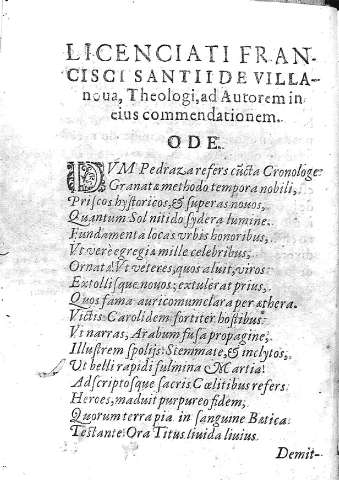 LICENCIATI FRAN-
CISCI SANTII DE VILLA-
noua, Theologi, ad Autorem in
eius commendationem.
ODE
DVM Pedraza refers cūcta Cronologe
Granatæ methodo tempora nobili,
Priscos hystoricos, & superas nouos,
Quantum Sol nitido sydera lumine.
Fundamenta locas vrbis honoribus,
Vt vere egregia mille celebribus,
Ornata! Vt veteres, quos aluit, viros
Extollisque nouos; extulerat prius,
Quos fama auricomum clara per æthera.
Victis Carolidem fortiter hostibus
Vt narras, Arabum fusa propagine,
Illustrem spolijs: Stemmate, & inclytos,
Ut belli rapidi fulmina Martia!
Adscriptosque sacris Cœlitibus refers
Heroes, maduit purpureo fidem,
Quorum terra pia in sanguine Bætica:
Testante Ora Titus liuida liuius.
Demit-